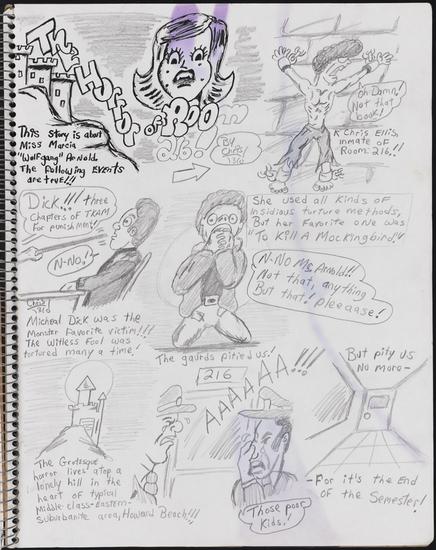 The Horror of Room
216!
This story is about
Miss Marcia
"Wolfgang" Arnold.
The following Events
are true!!!
By Chris
1310
Oh Damn,
Not that
book!
K Chris Ellis,
inmate of
Room 216!!
Dick!!! three
Chapters of TKAM
for punishmm!
N-No!
Chris
1310
Micheal Dick was the
Monster Favorite victim!!!
The witless Fool was
tortured many a time!
She used all Kinds of
insidious turture methods,
But her Favorite one was
"To Kill A Mockingbird!"
N-NO Ms Arnold!!
Not that, anything
But that! pleeaase!
The gaurds pitied us!
216
AAAAAA...!!!
But pity us
No more-
The Grotesque
horror lives atop a
lonely hill in the
heart of typical
Middle-class-eastern-
suburbanite area, Howard Beach!!!
Those poor
Kids!
-For it's the End
of the Semester!